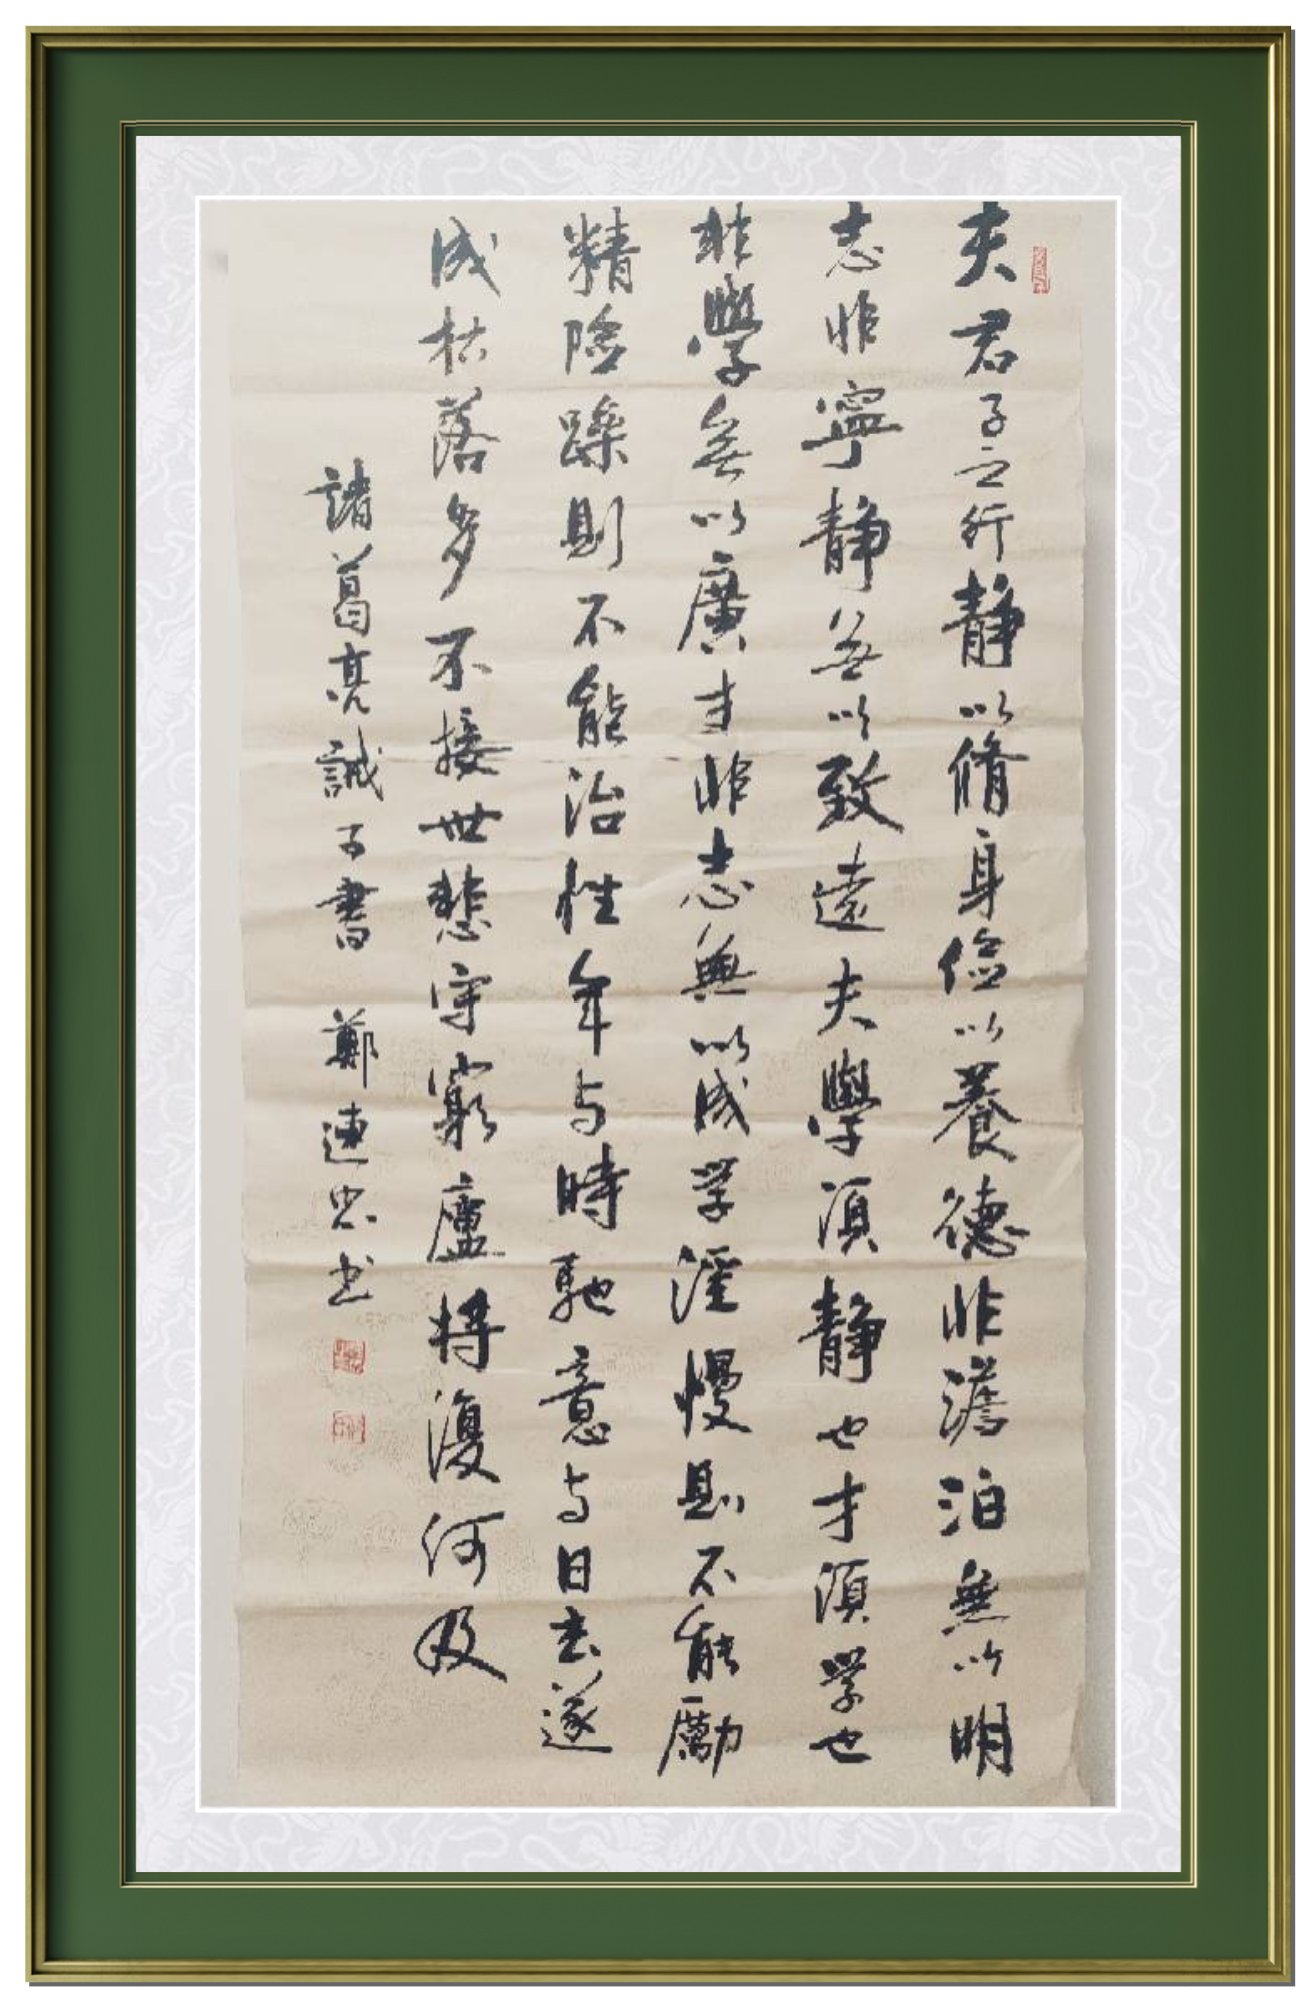 夫君子之行静以脩身儉以養德非澹泊無以明
志非寧静無以致遠夫學須静也才須學也
非學無以廣才非志無以成学淫慢則不能勵
精險躁則不能治性年与時馳意与日去遂
成枯落多不接世悲守窮廬将復何及
諸葛亮誡子書 鄭連忠书